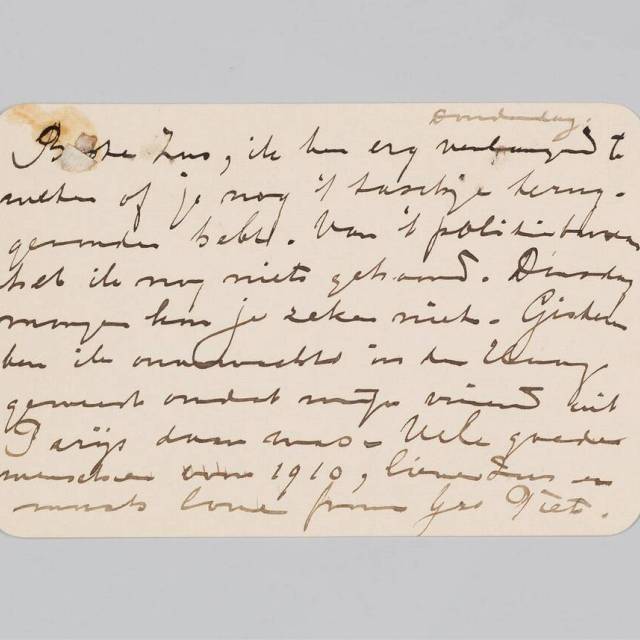 Donderdag.
Beste Zus, ik ben erg verlangend te
weten of je nog 't taschje terug-
gevonden hebt. Van 't politiebureau
heb ik nog niets gehoord. Dinsdag
morgen kon je zeker niet. Gisteren
ben ik onverwachts in den Haag
geweest omdat mijn vriend uit
Parijs daar was. Vele goede
wenschen voor 1910, lieve Zus en
much love from Piet.